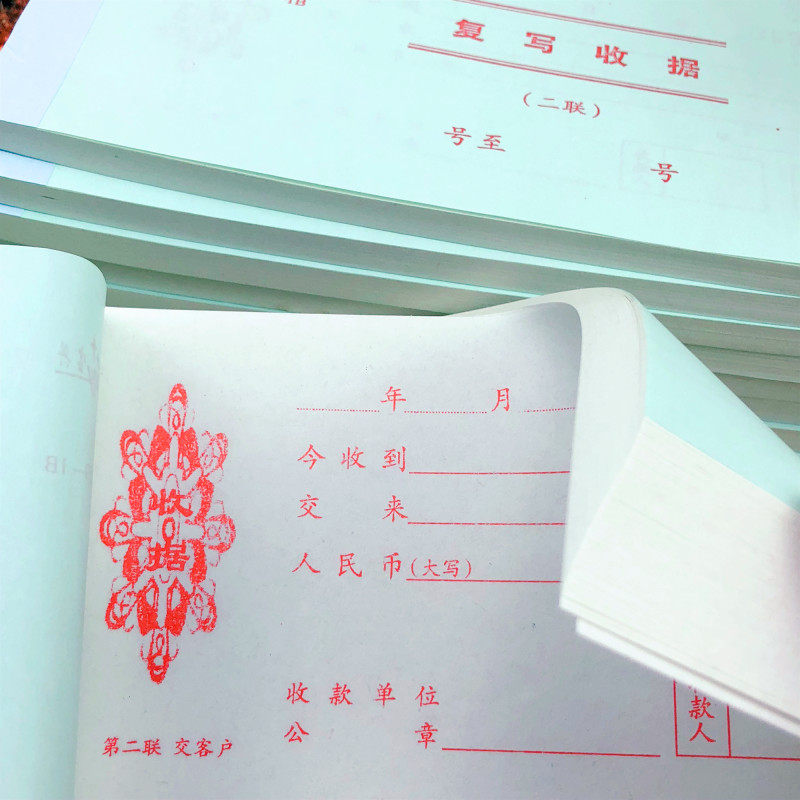 复写收据
（二联）
号至 号
年 月
今收到
交来
人民币(大写)
收据
收款单位
公章
款人
第二联 交客户